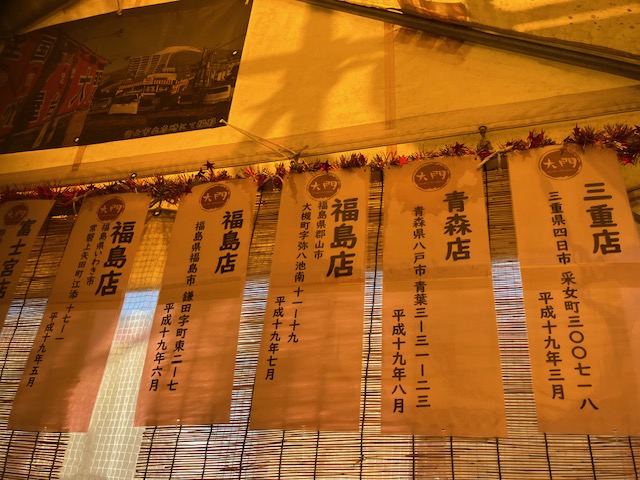 大門
三重店
三重県四日市 采女町三〇〇七一八
平成十九年三月
大門
青森店
青森県八戸市 青葉三ー三一ー二三
平成十九年八月
大門
福島店
福島県郡山市
大槻町字弥八池南 十一ー十九
平成十九年七月
大門
福島店
福島県福島市 鎌田字町東二ー七
平成十九年六月
大門
福島店
福島県いわき市
常磐上矢田町江添 十七ー一
平成十九年五月
富士宮店